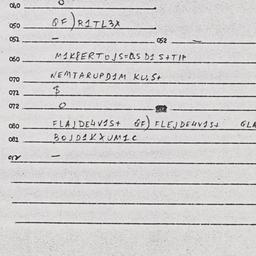 040 0
050 GF) R1TL3X
051 — 052 —
060 M1KPERTOJS=DS D1 S+T1P
070 NEMTARUPD1M KULS+
071 $
072 0
080 FLAJDE4V1S+ GF) FLEJDE4V1S+ GLA
081 BOJD1KXUM1C
—